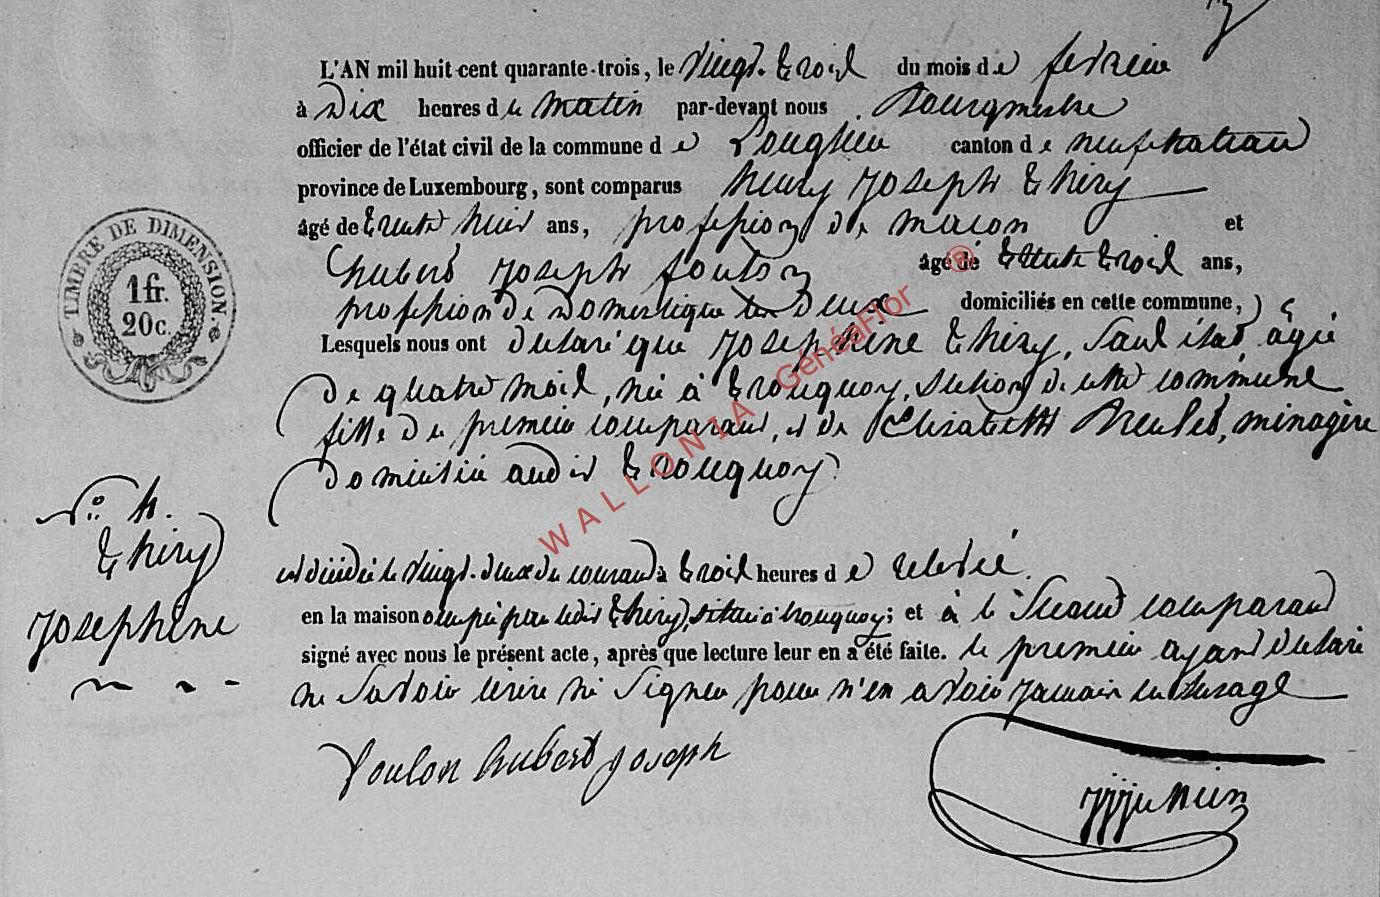 L'AN mil huit cent quarante-trois, le vingt-trois du mois de fevrier
à dix heures du matin par-devant nous Bourgmestre
officier de l'état civil de la commune de Longlier canton de neufchateau
province de Luxembourg, sont comparus henry Joseph Thiry
âgé de trente huit ans, profession de macon et
hubert Joseph Poulon âgé de trente trois ans,
profession de domestique deux domiciliés en cette commune,
Lesquels nous ont declaré que Josephine Thiry, sans état, agée
de quatre mois, née à tronquoy, section de cette commune
fille du premier comparant, et de Elisabeth, ménagère
domiciliée audit tronquoy
N° 4.
Thiry
Josephine
est décédée le vingt-deux du courant à trois heures de relevée
en la maison occupée par ledit Thiry, située à tronquoy; et a le second comparant
signé avec nous le présent acte, après que lecture leur en a été faite. le premier ayant declaré
ne savoir écrire ni signer pour n'en avoir jamais eu l'usage
Poulon hubert joseph
TIMBRE DE DIMENSION.
1 fr.
20 c.
WALLONIA GénéaFlor ®